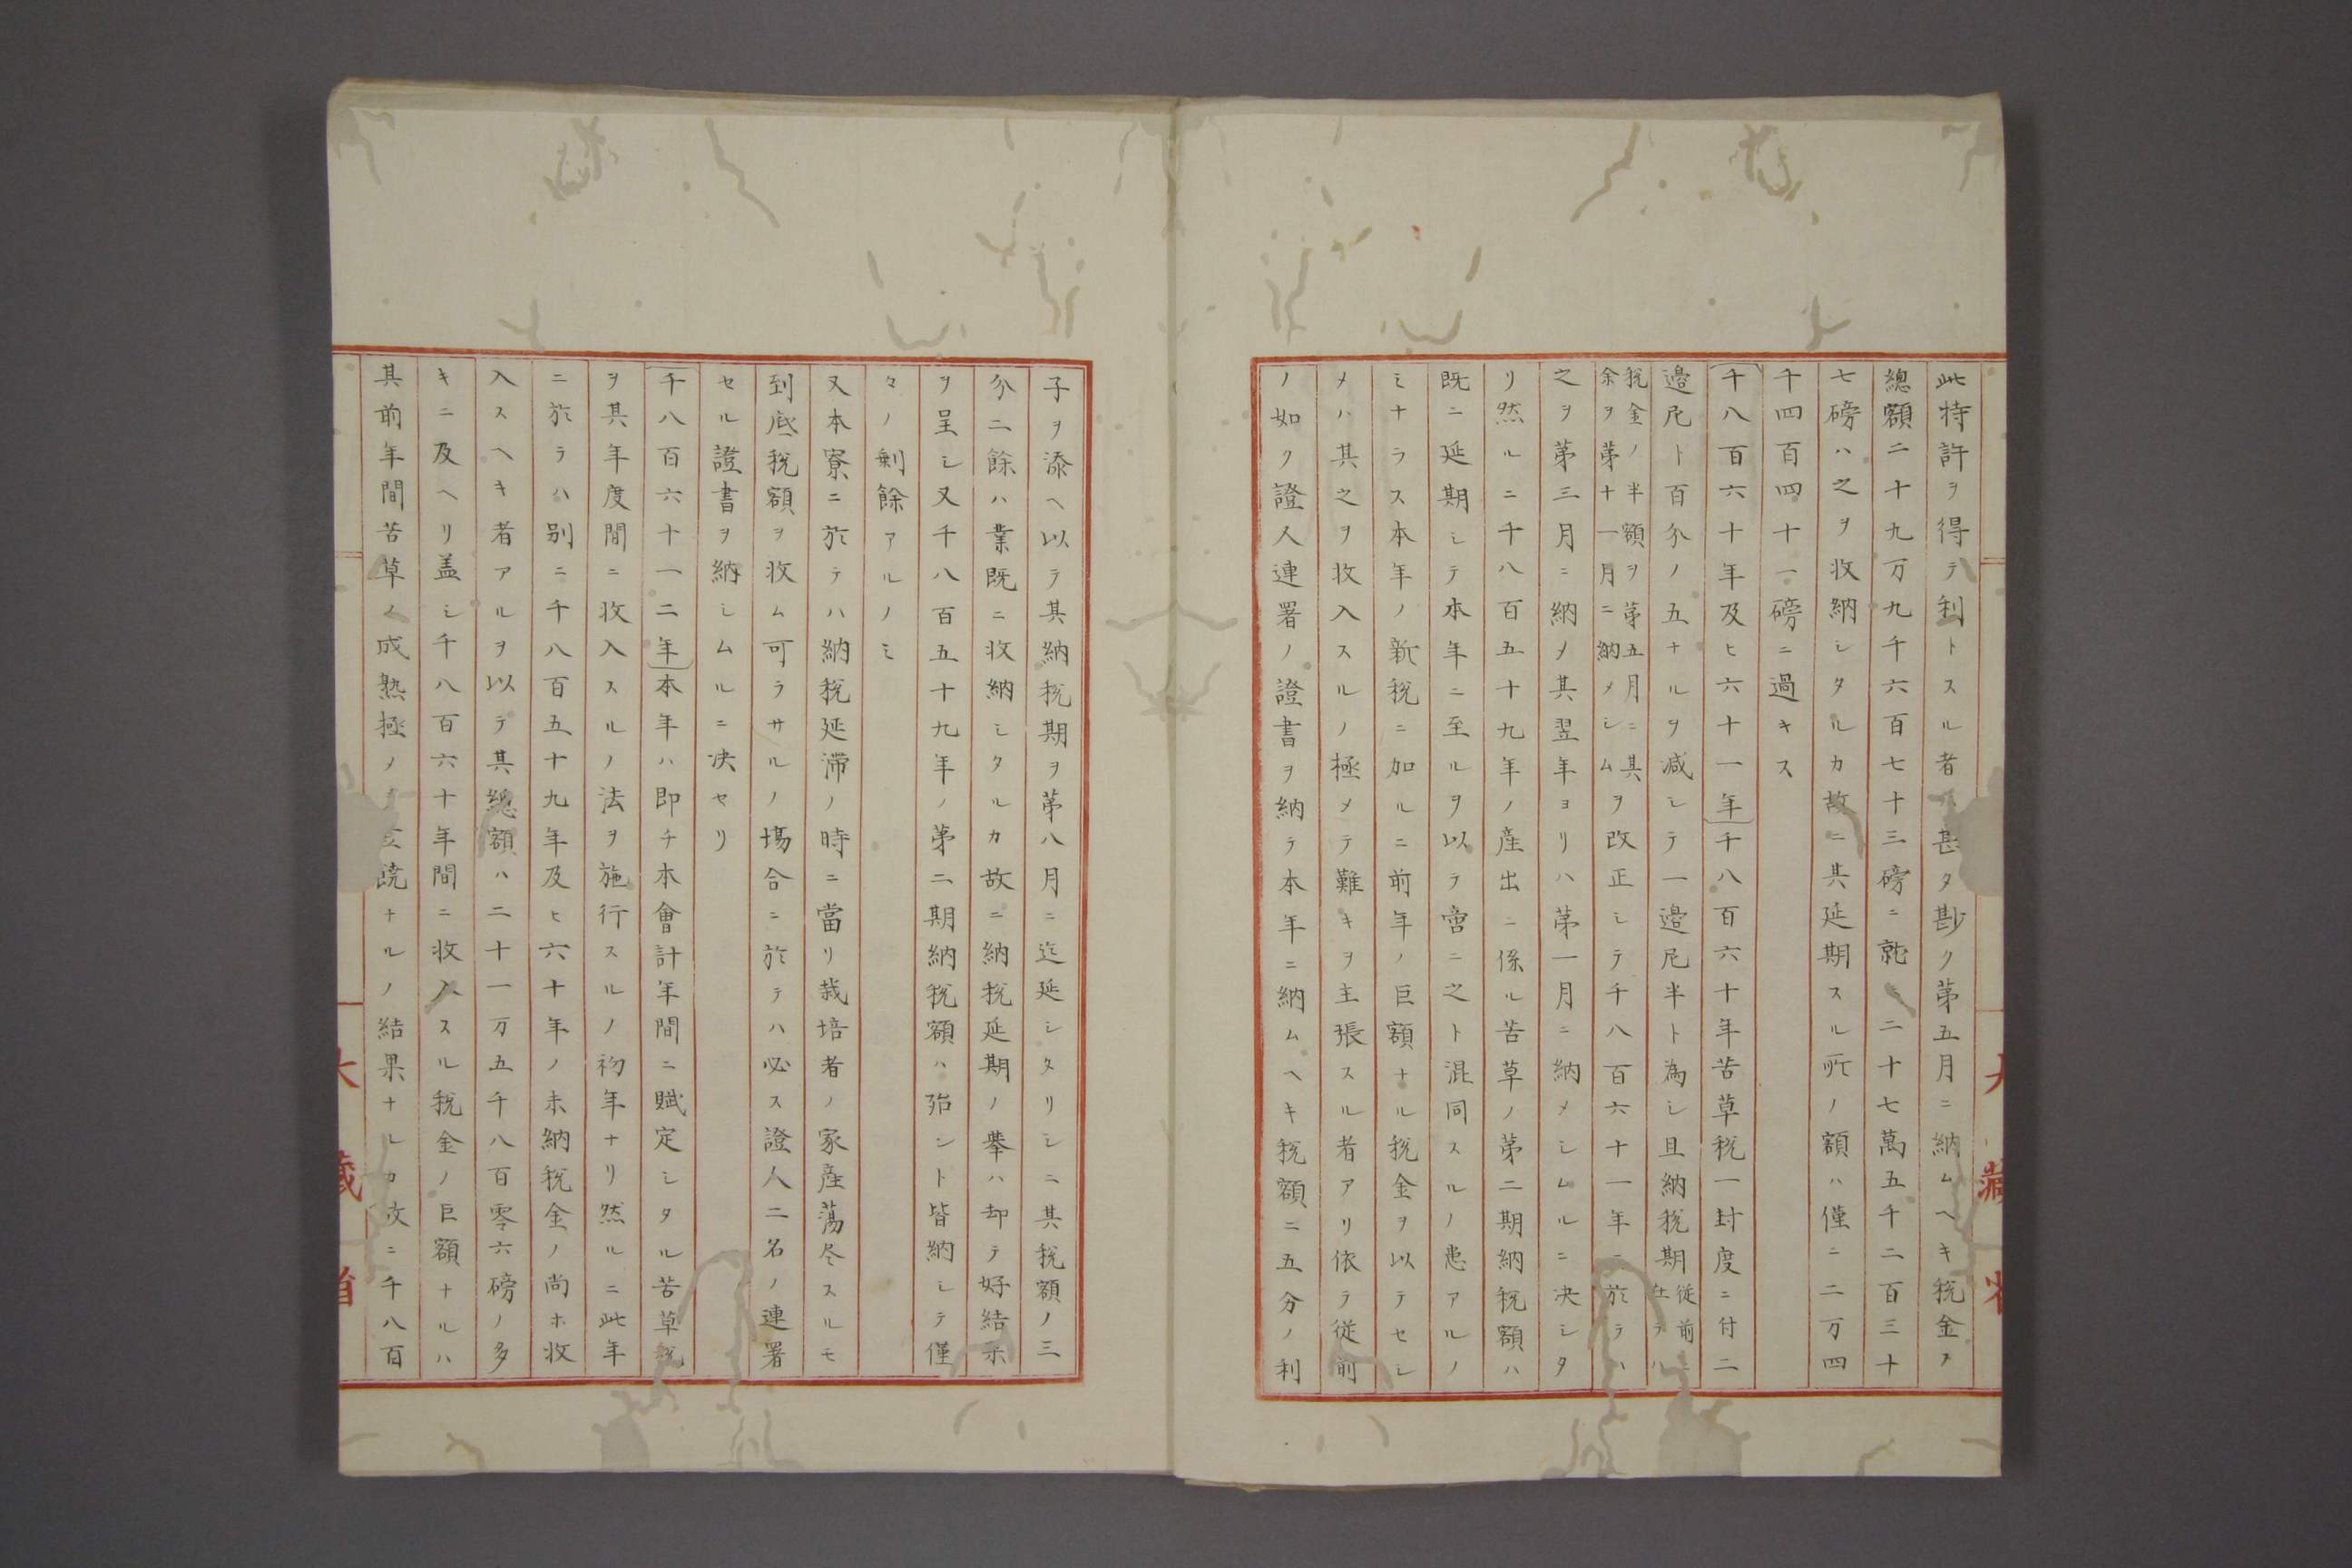 此特許ヲ得テ利トスル者甚タ尠ク第五月ニ納ムヘキ税金ノ
總額二十九万九千六百七十三磅ニ就二十七萬五千二百三十
七磅ハ之ヲ收納シタルカ故ニ其延期スル所ノ額ハ僅ニ二万四
千四百四十一磅ニ過キス
千八百六十年及ヒ六十一年 千八百六十年苦草税一封度ニ付二
邉尼ト百分ノ五ナルヲ减シテ一邉尼半ト為シ且納税期 従前ニ在テハ
税金ノ半額ヲ第五月ニ其余ヲ第十一月ニ納メシム ヲ改正シテ千八百六十一年ニ於テハ
之ヲ第三月ニ納メ其翌年ヨリハ第一月ニ納メシムルニ决シタ
リ然ルニ千八百五十九年ノ産出ニ係ル苦草ノ第二期納税額ハ
既ニ延期シテ本年ニ至ルヲ以テ啻ニ之ト混同スルノ患アルノ
ミナラス本年ノ新税ニ加ルニ前年ノ巨額ナル税金ヲ以テセシ
メハ其之ヲ收入スルノ極メテ難キヲ主張スル者アリ依テ従前
ノ如ク證人連署ノ證書ヲ納テ本年ニ納ムヘキ税額ニ五分ノ利
子ヲ添ヘ以テ其納税期ヲ第八月ニ迄延シタリシニ其税額ノ三
分二餘ハ業既ニ收納シタルカ故ニ納税延期ノ擧ハ却テ好結示
ヲ呈シ又千八百五十九年ノ第二期納税額ハ殆ント皆納シテ僅
々ノ剰餘アルノミ
又本寮ニ於テハ納税延滞ノ時ニ當リ栽培者ノ家産蕩尽スルモ
到底税額ヲ收ム可ラサルノ塲合ニ於テハ必ス證人二名ノ連署
セル證書ヲ納シムルニ决セリ
千八百六十一二年 本年ハ即チ本會計年間ニ賦定シタル苦草税
ヲ其年度間ニ收入スルノ法ヲ施行スルノ初年ナリ然ルニ此年
ニ於テハ別ニ千八百五十九年及ヒ六十年ノ未納税金ノ尚ホ收
入スヘキ者アルヲ以テ其總額ハ二十一万五千八百零六磅ノ多
キニ及ヘリ盖シ千八百六十年間ニ收入スル税金ノ巨額ナルハ
其前年間苦草ノ成熟極ノ饒ナルノ結果ナルカ故ニ千八百
大藏省